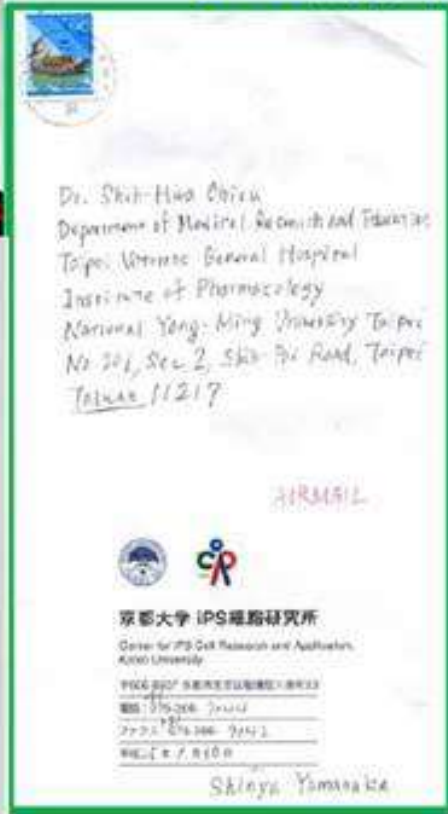 Dr. Shih-Hwa Chiou
Department of Medical Research and Education
Taipei Veterans General Hospital
Institute of Pharmacology
National Yang-Ming University Taipei
No 201, Sec 2, Shih-Pai Road, Taipei
Taiwan 11217
AIRMAIL
京都大学 iPS細胞研究所
Center for iPS Cell Research and Application,
Kyoto University
電話
ファクス
Shinya Yamanaka